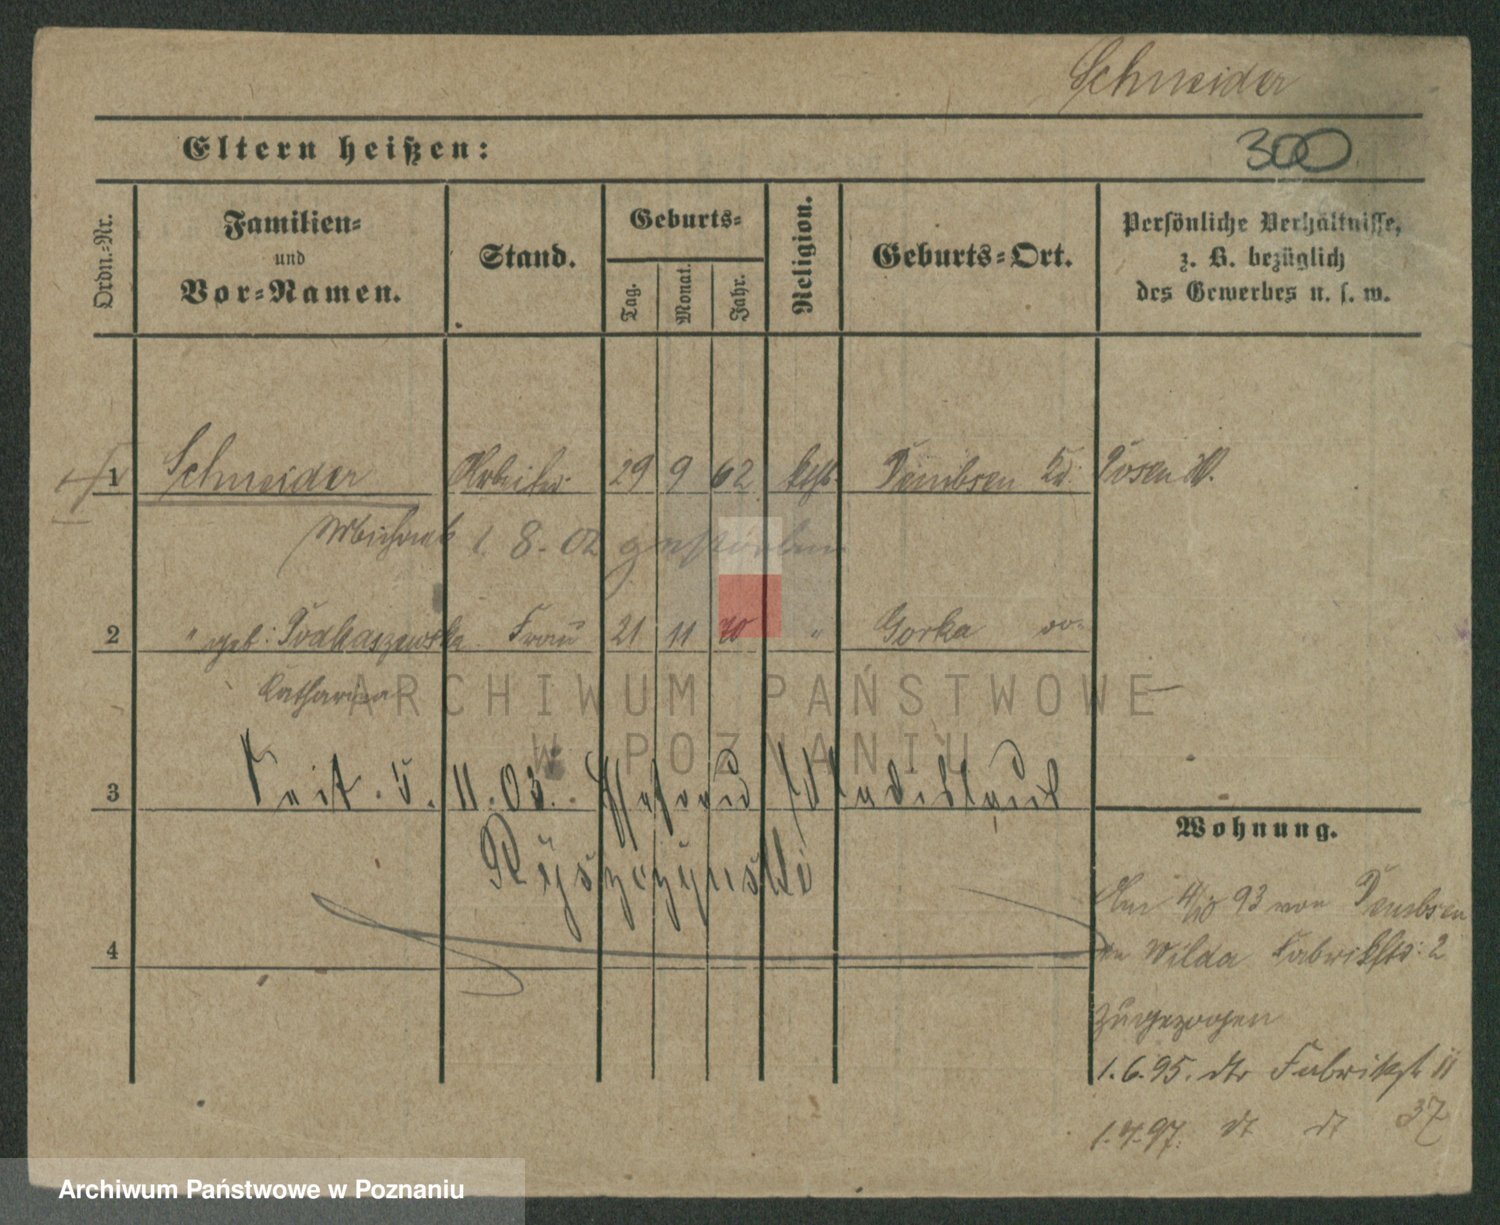 Schneider
Eltern heißen:
300
Ordn.=Nr.
Familien=
und
Vor=Namen.
Stand.
Geburts=
Tag.
Monat.
Jahr.
Religion.
Geburts=Ort.
Persönliche Verhältnisse,
z. B. bezüglich
des Gewerbes u. s. w.
1 Schneider Arbeiter 29 9 62 kath. Dembsen Kr. Posen W.
Michael 1. 8. 02 gestorben
2 " geb: Podkaszewska Frau 21 11 70 " Gorka
Catharina
ARCHIWUM PAŃSTWOWE
W POZNANIU
3 Seit 5. 11. 03. Wladislaus
Ryszczynski
Wohnung.
4
Am 4/10 93 von Dembsen
Wilda Fabrikstr: 2
zugezogen
1. 6. 95. dto Fabrikst 11
1. 4. 97. dt dt 37
Archiwum Państwowe w Poznaniu